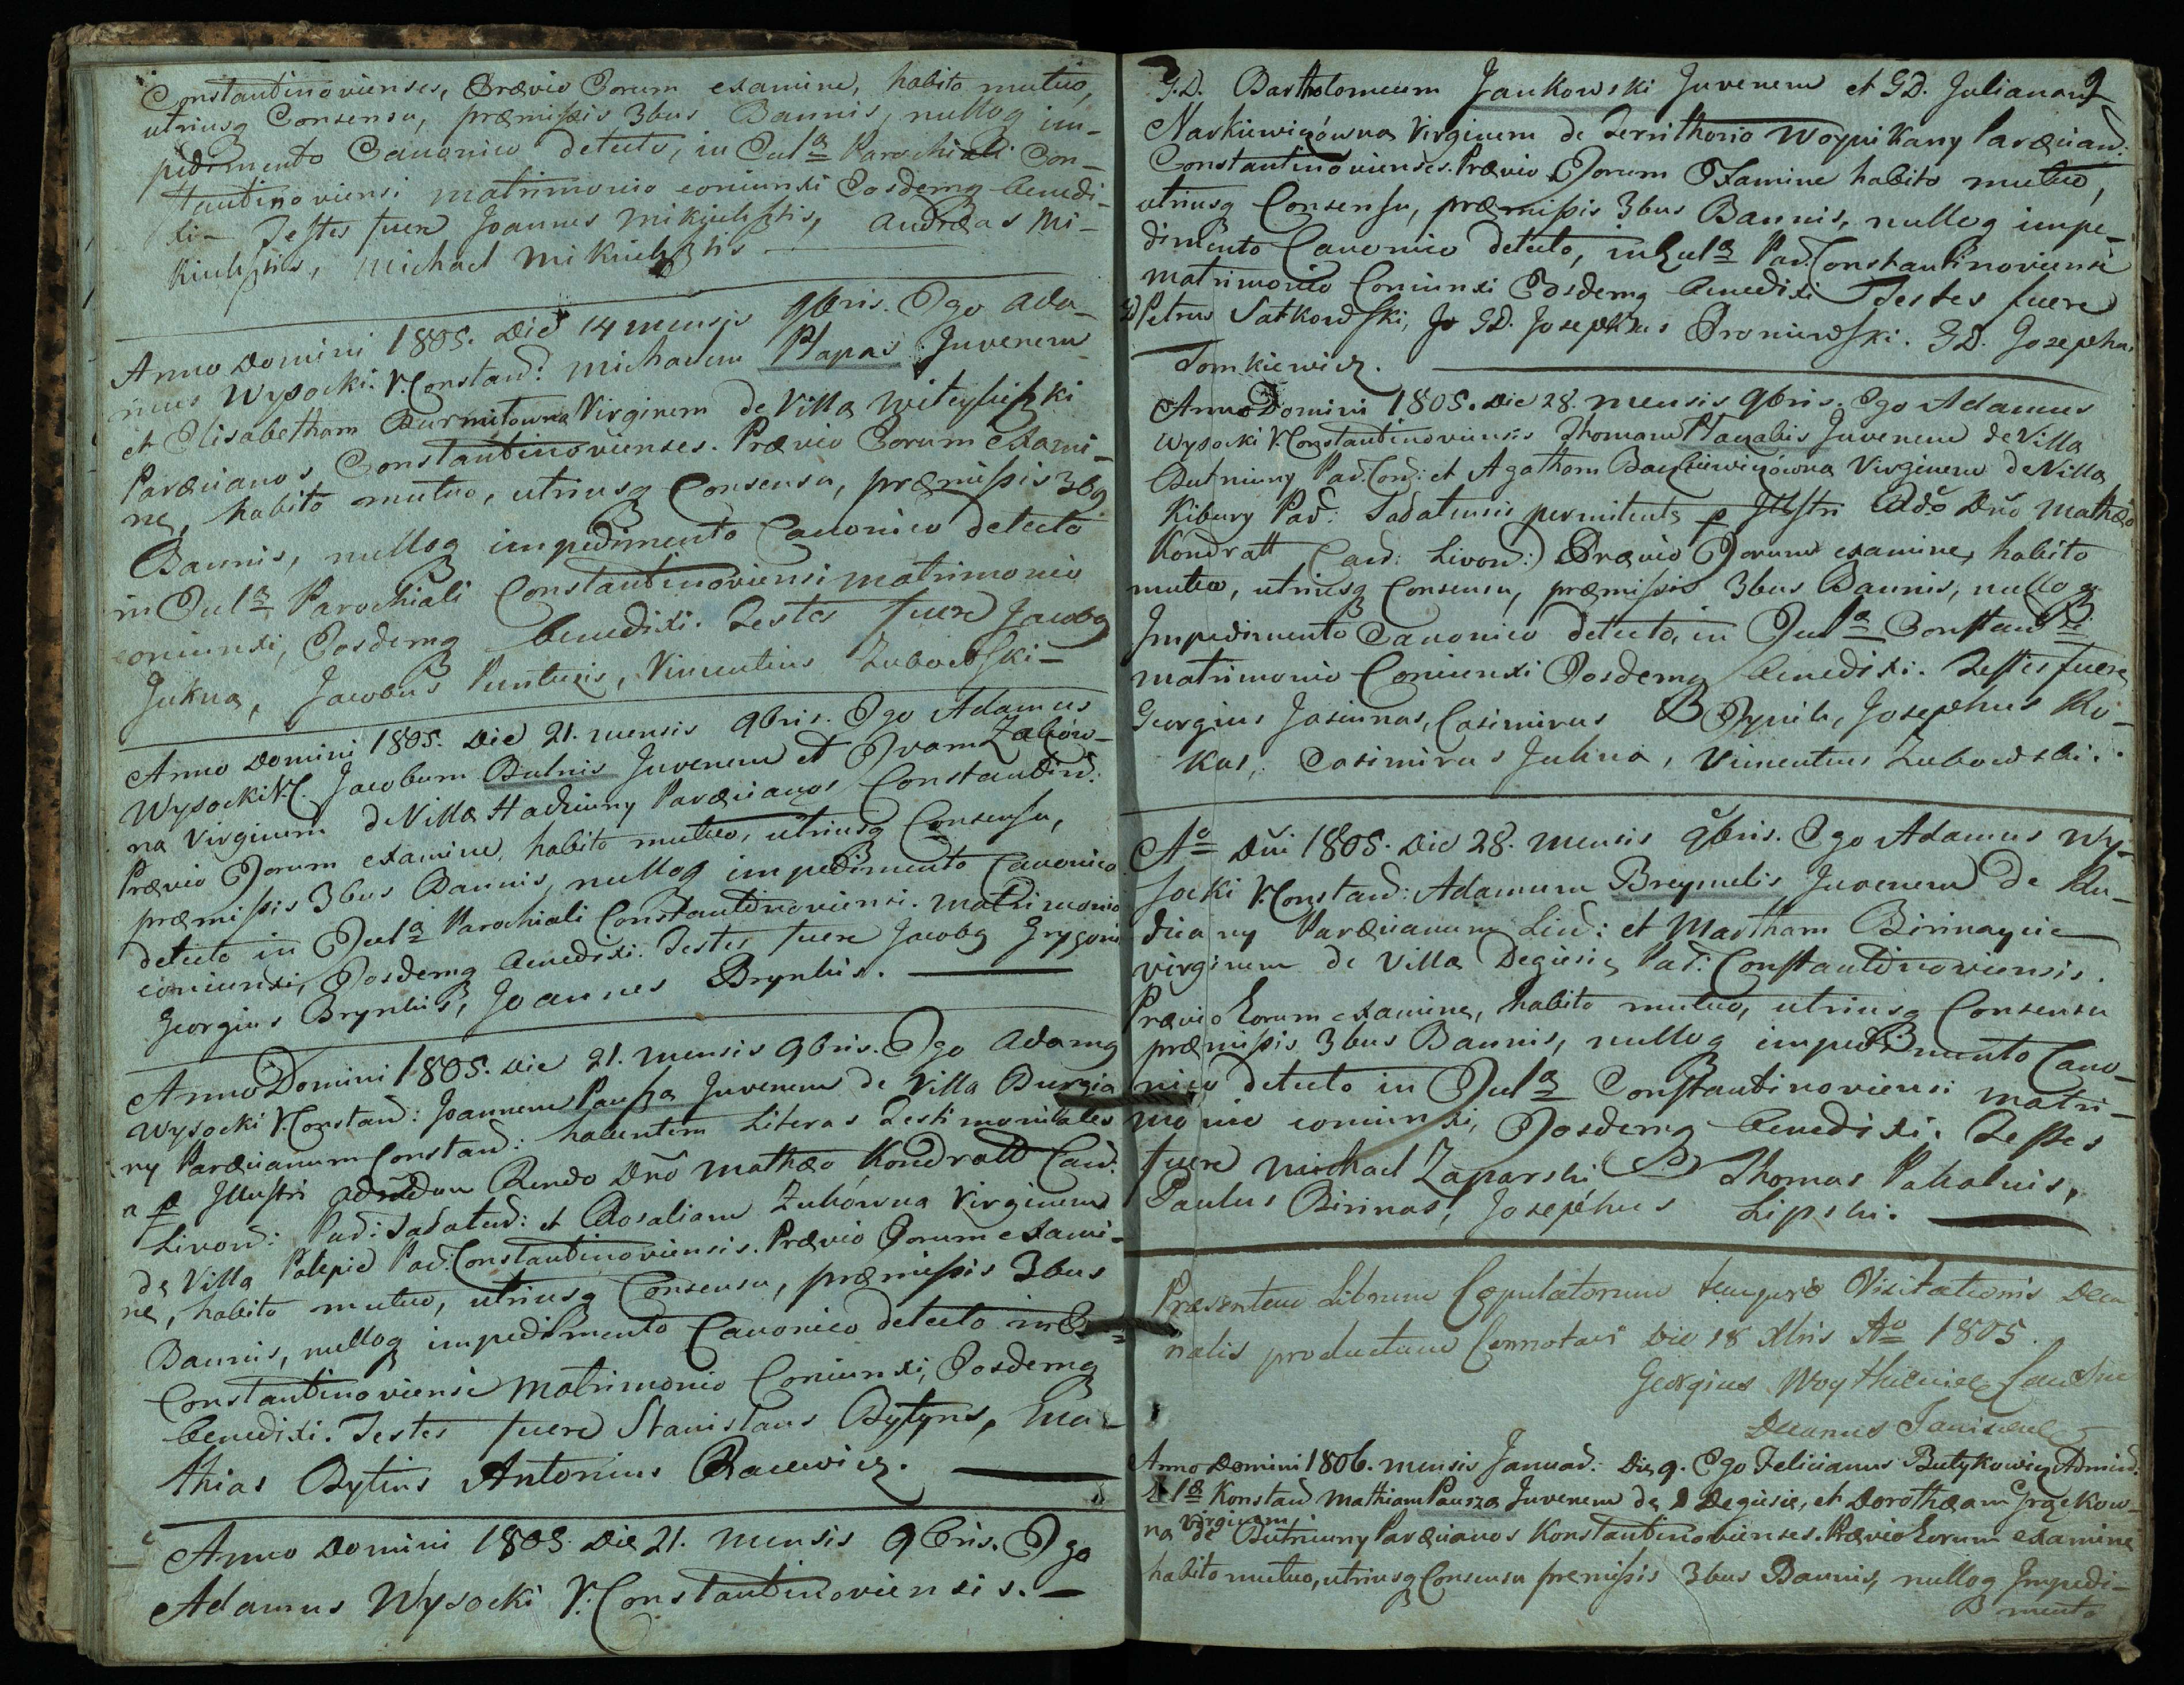 Constantinovienses, Prævio Eorum examine, habito mutuo,
utriusq Consensu, præmissis 3bus Bannis, nulloq im-
pedimento Canonico detecto, in Eccla Parochiali Con-
stantinoviensi matrimonio coniunxi Eosdemq benedi-
xi - Testes fuere Joannes Mikiulsztis, Andreas Mi-
kiulsztis, Michael Mikiulsztis
Anno Domini 1805. Die 14 mensis 9bris. Ego Ada-
mus Wysocki. V. Constan: Michaelem Plapas Juvenem
et Elisabetham Burnitowna Virginem de Villa
Paræcianos Constantinovienses. Prævio Eorum Exami-
ne, habito mutuo, utriusq Consensu, præmissis 3bq
Bannis, nulloq impedimento Canonico detecto
in Eccla Parochiali Constantinoviensi matrimonio
coniunxi, Eosdemq benedixi. Testes fuere Jacobq
Jukna, Jacobus Puntuzis, Vincentius Zubowski -
Anno Domini 1805. Die 21. mensis 9bris. Ego Adamus
Wysocki V.C. Jacobum Butnis Juvenem et Evam Zabiow-
na Virginem de Villa Hadziuny Paræcianos Constantin:
Prævio Eorum examine, habito mutuo, utriusq Consensu,
præmissis 3bus Bannis, nulloq impedimento Canonico
detecto in Eccla Parochiali Constantinoviensi. matrimonio
coniunxi, Eosdemq benedixi. Testes fuere Jacobq Grygonis
Georgius Brynkis, Joannes Brynkis.
Anno Domini 1805. Die 21. mensis 9bris. Ego Adamq
Wysocki V. Constan: Joannem Pausza Juvenem de Villa Burgia
ny Paræcianum Constan: habentem Literas Testimoniales
a p Illustri Rndo Dno Mathæo Kondratt Can:
Livon: Par: Salaten: et Rosaliam Zukowna Virginem
de Villa Palepie Par: Constantinoviensis. Prævio Eorum exami-
ne, habito mutuo, utriusq Consensu, præmissis 3bus
Bannis, nulloq impedimento Canonico detecto in E-
Constantinoviensi Matrimonio Coniunxi, Eosdemq
benedixi. Testes fuere Stanislaus Bytyns, Ma-
thias Bytins Antonius Racewicz.
Anno Domini 1805. Die 21. mensis 9bris. Ego
Adamus Wysocki V. Constantinoviensis. -
9
G.D. Bartholomeum Jankowski Juvenem et GD. Julianam
Narkiewiczówna Virginem de Territhorio Woynikany Paræcian:
Constantinovienses. Prævio Eorum Examine habito mutuo,
utriusq Consensu, præmissis 3bus Bannis, nulloq impe-
dimento Canonico detecto, in Eccla Par. Constantinoviensi
matrimonio Coniunxi Eosdemq benedixi Testes fuere
GD Petrus Satkowski, GD. Josephus Broniewski. GD. Josephus
Tomkiewicz.
Anno Domini 1805. Die 28. mensis 9bris. Ego Adamus
Wysocki V. Constantinoviensis Thomam Plauabis Juvenem de Villa
Butniuny Par: Con: et Agatham Baczkiewiczówna Virginem de Villa
Kibury Par: Salatensis permitente p Illstri Ado Dno Mathæo
Kondratt Can: Livon:) Prævio Eorum examine, habito
mutuo, utriusq Consensu, præmissis 3bus Bannis, nulloq
Impedimento Canonico detecto, in Eccla Constan
matrimonio Coniunxi Eosdemq benedixi. Testes fuere
Georgius Jasiunas, Casimirus Josephus Ru-
kas, Casimirus Jukna, Vincentius Zubowski.
Ao Dni 1805. Die 28. mensis 9bris. Ego Adamus Wy-
socki V. Constan: Adamum Breymelis Juvenem de Ru-
dziany Paræcianum Lin: et Martham Birinaycie
virginem de Villa Degiesie Par: Constantinoviensis.
Prævio Eorum examine, habito mutuo, utriusq Consensu
præmissis 3bus Bannis, nulloq impedimento Cano-
nico detecto in Eccla Constantinoviensi matri-
monio coniunxi, Eosdemq benedixi. Testes
fuere Michael Zaparski Thomas Pakalnis,
Paulus Birinas, Josephus Lipski.
Præsentem Librum Copulatorum tempore Visitationis Deca
nalis productum Connotavi Die 18 Xbris Ao 1805.
Georgius
Decanus
Anno Domini 1806. mensis Januar: Die 9. Ego Felicianus Butykowicz Admin:
E. Konstan Mathiam Pausza Juvenem de Degiesie, et Dorothæam
na virginem de Butniuny Paræcianos Konstantinovienses. Prævio Eorum examine
habito mutuo, utriusq Consensu premissis 3bus Bannis, nulloq Impedi-
mento